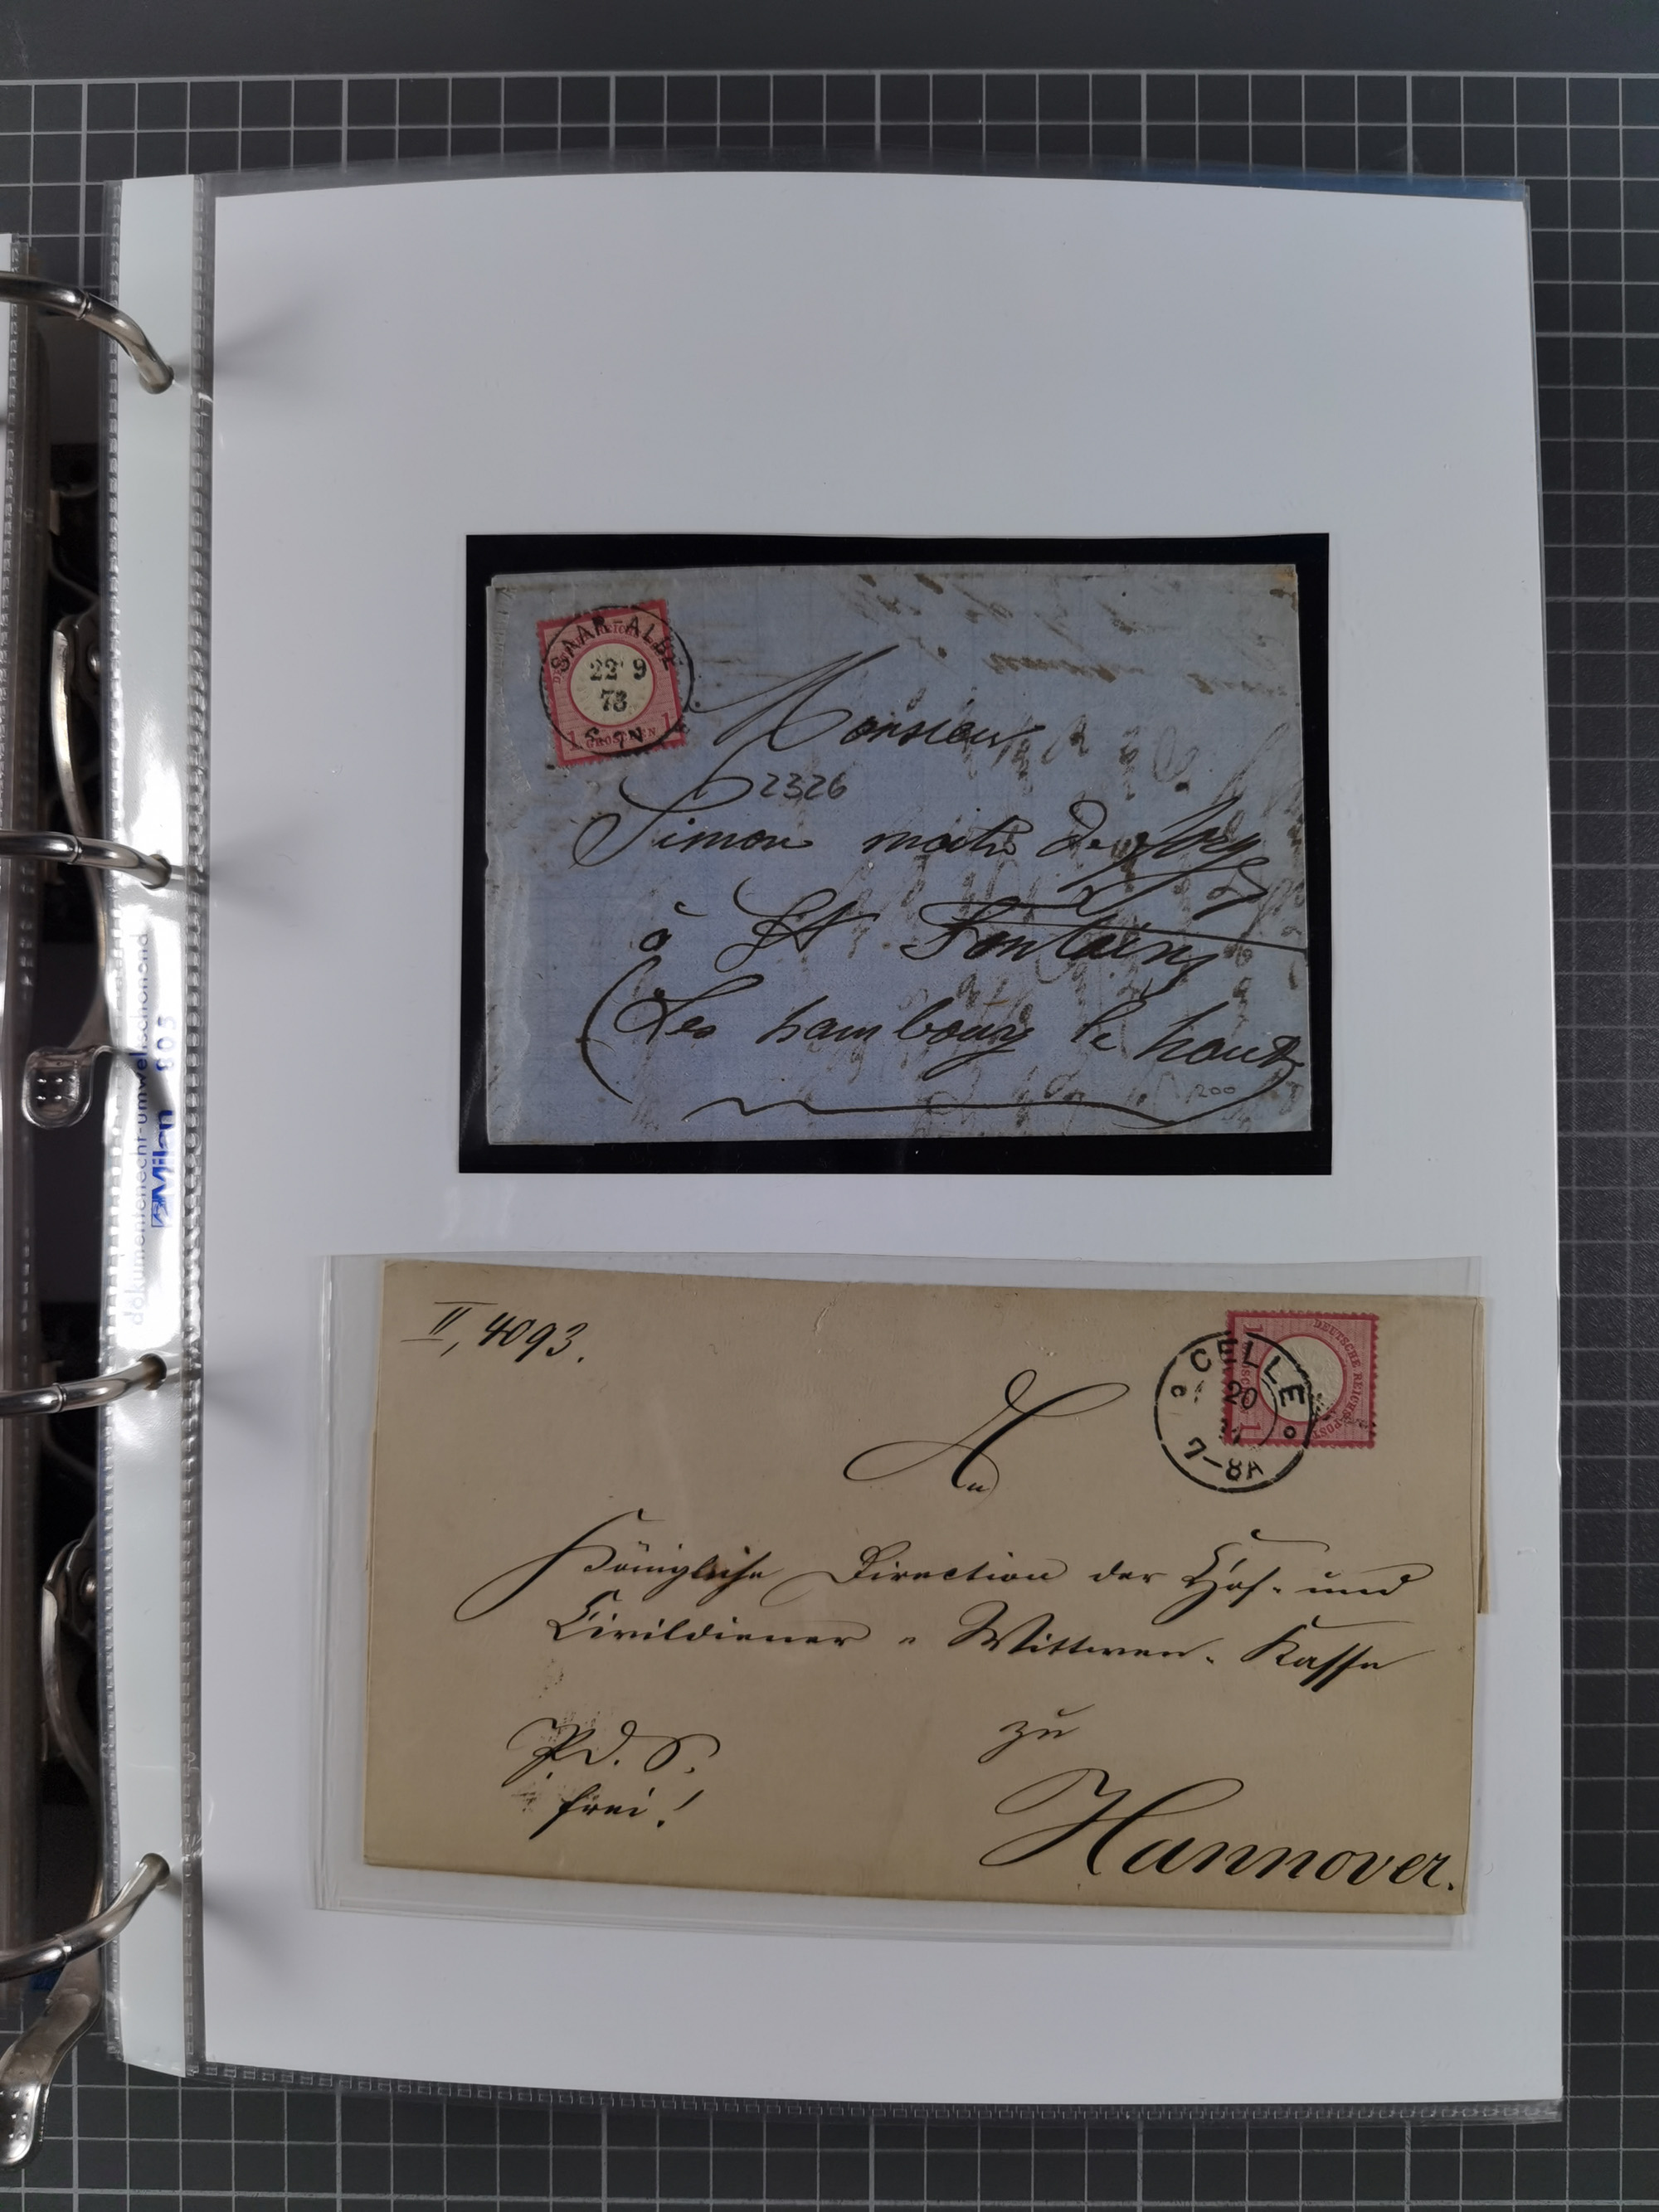 SAAR-ALBE
22 9
73
1 GROSCHEN 1
Monsieur
2326
Simon
à St Fontain
(Les hambourg le haut)
200
dokumentenecht-umweltschonend
Milan 805
II, 4093.
CELLE
20
7-8A
DEUTSCHE REICHS-POST
An
Königliche Direction der Hof- und
Civildiener-Wittwen-Kasse
zu
P.d.S.
frei!
Hannover.